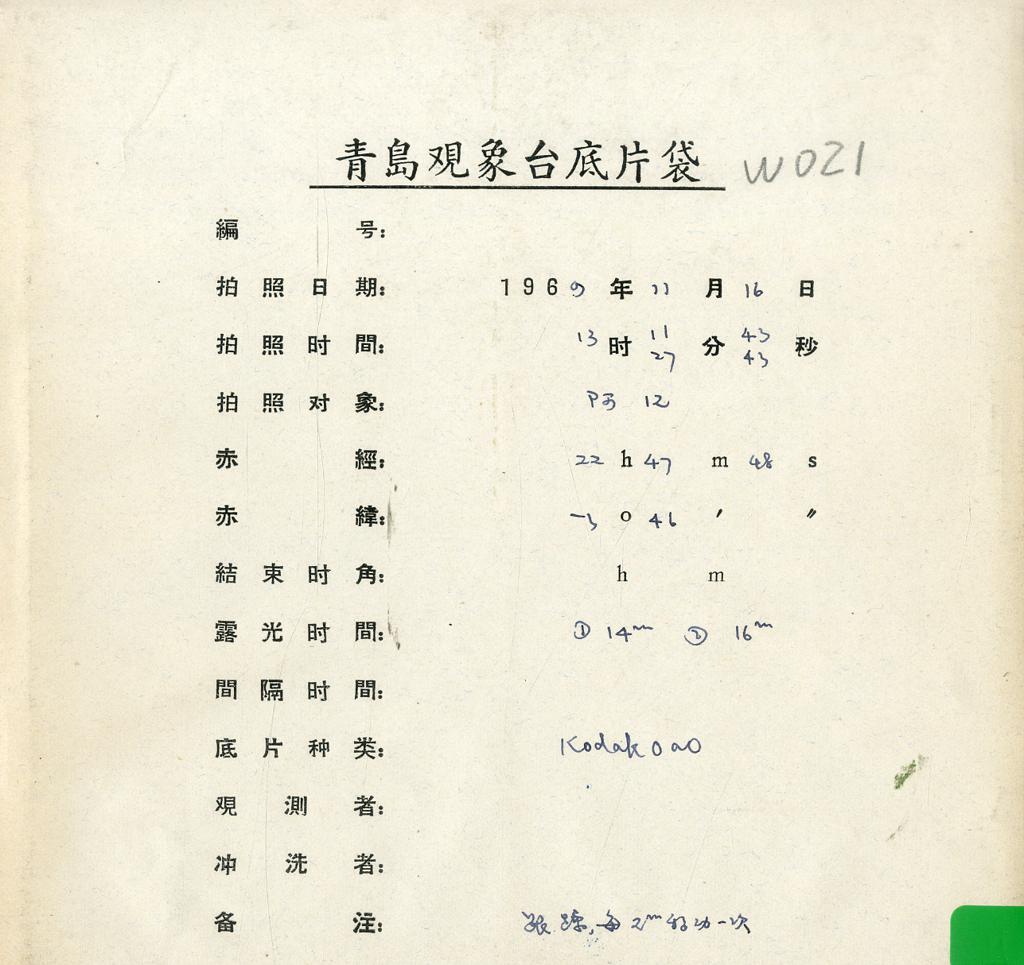 青島观象台底片袋 W021
編号:
拍照日期: 1969年11月16日
拍照时間: 13时11分43秒
27 43
拍照对象: 阿12
赤經: 22h47m48s
赤緯: -3°46′ ″
結束时角: h m
露光时間: ①14m ②16m
間隔时間:
底片种类: Kodak OaO
观測者:
冲洗者:
备注: 跟踪,每2m移动一次